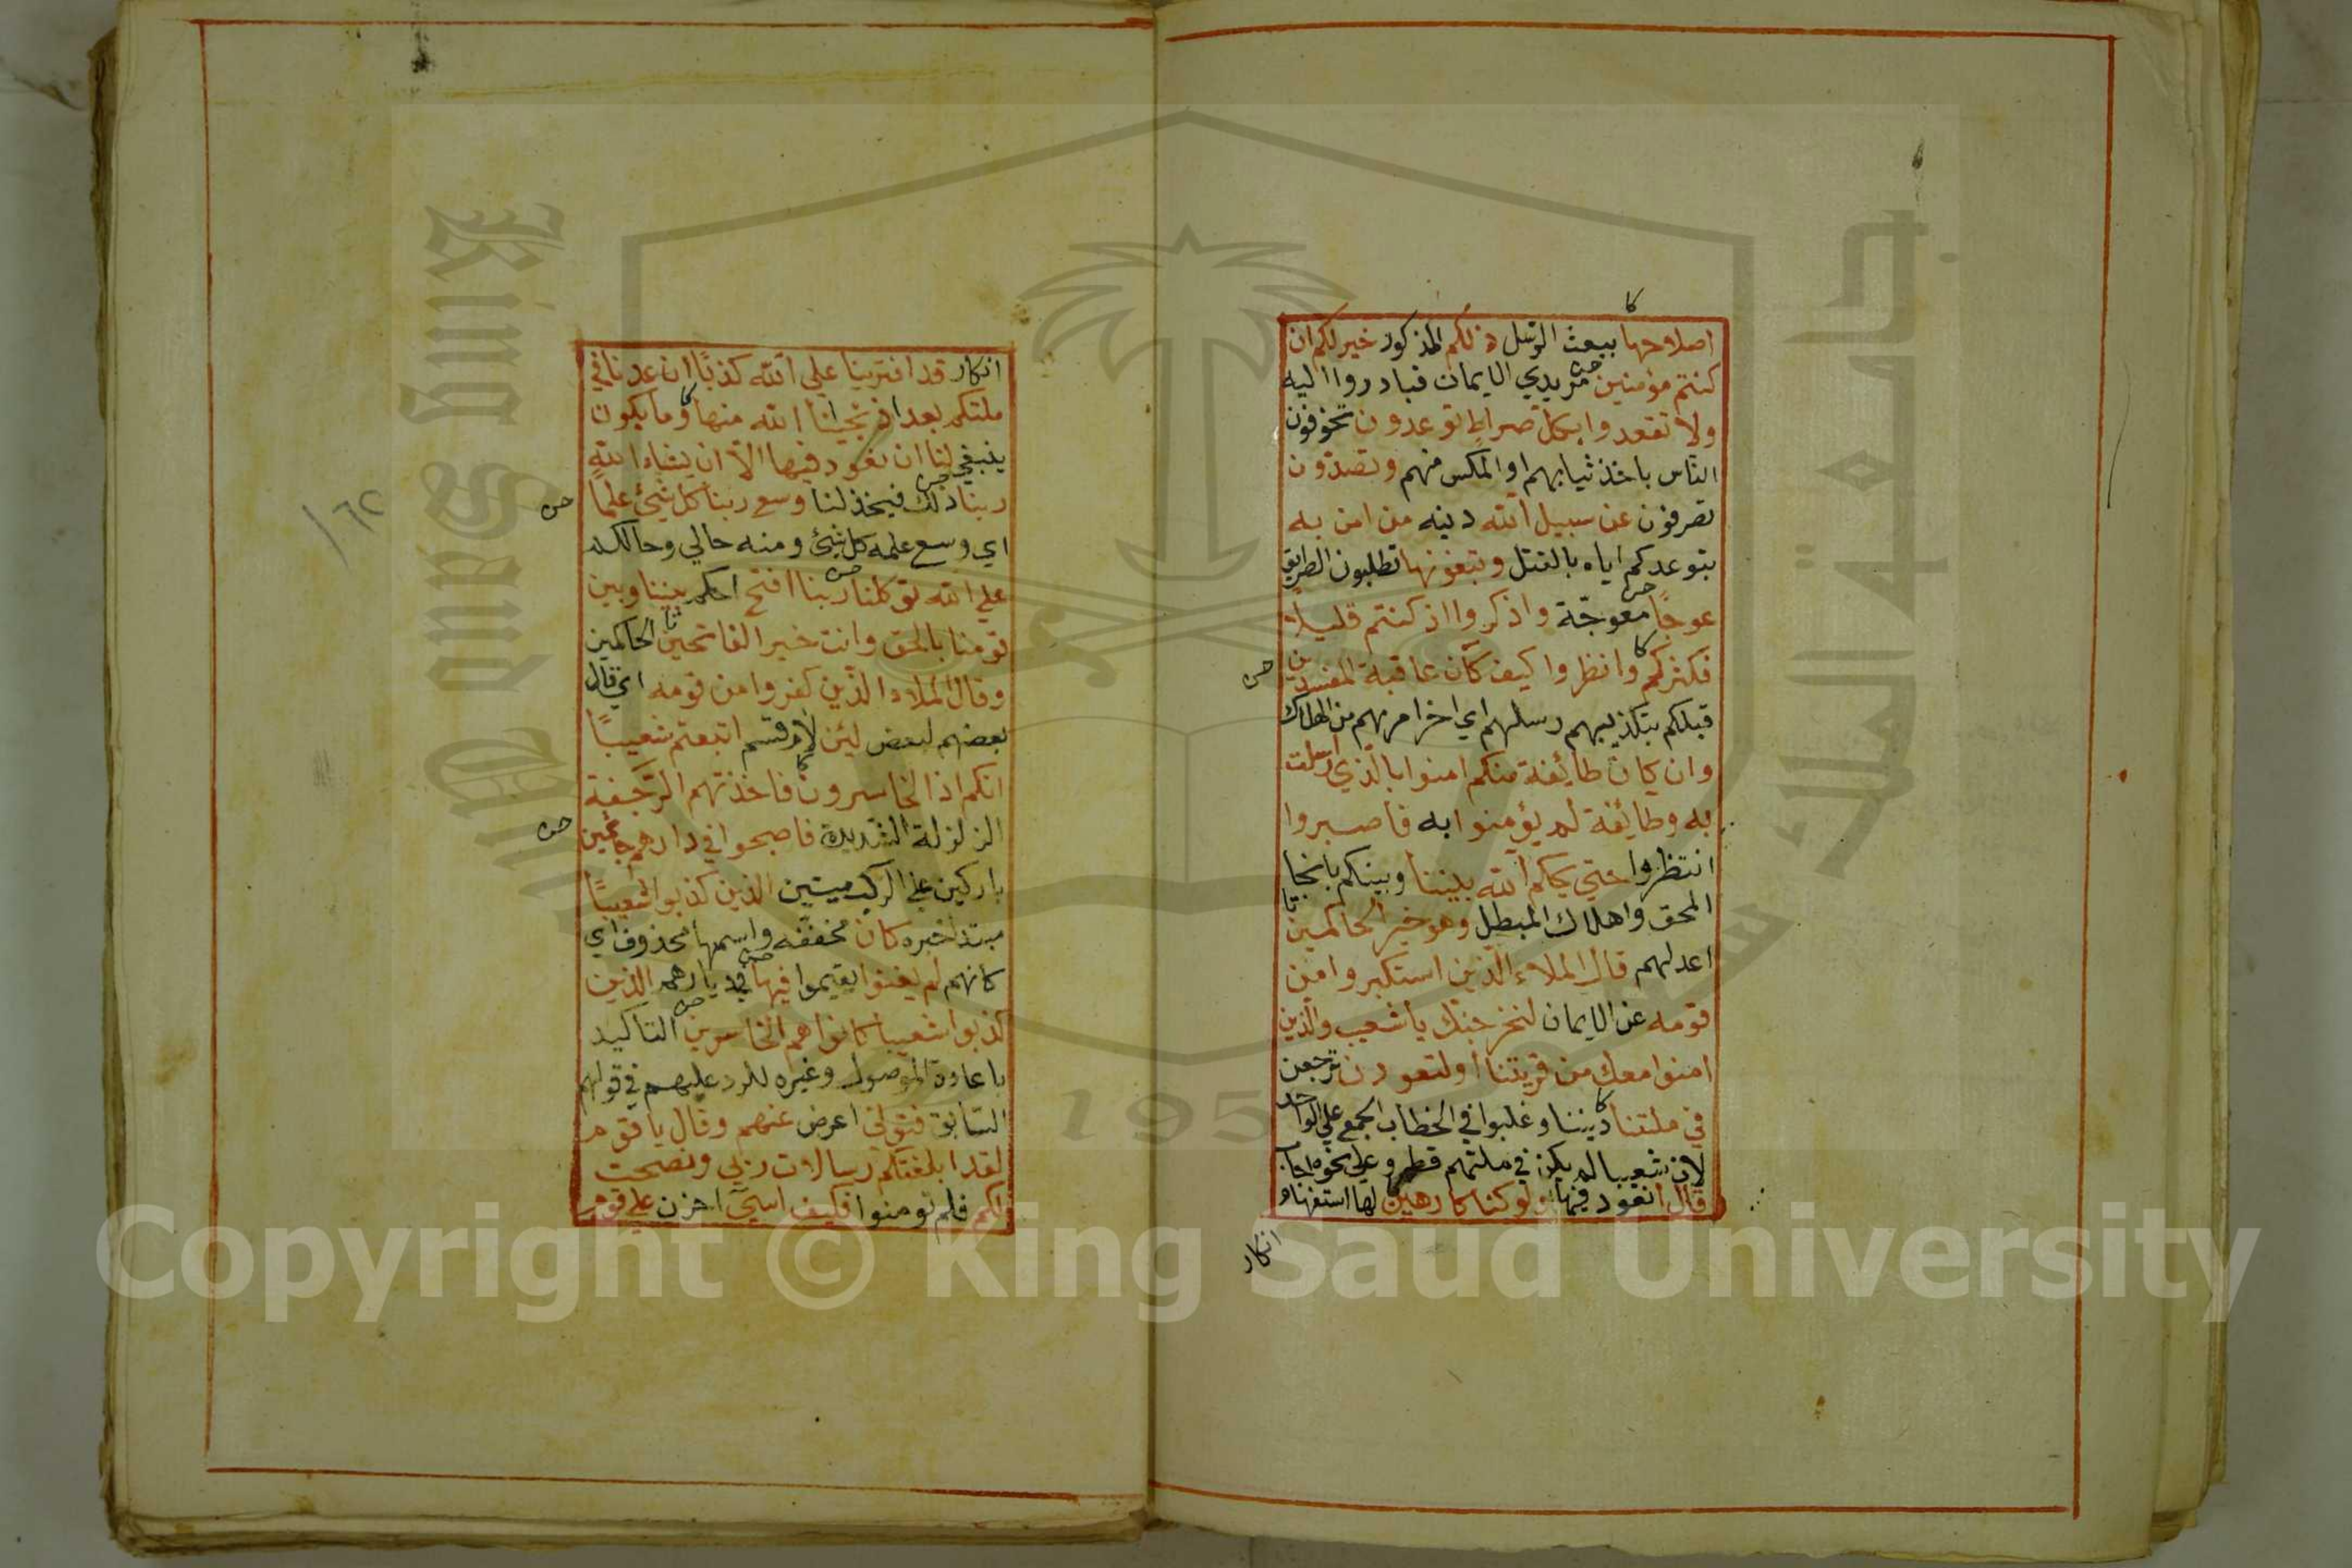 كا
اصلاحها ببعث الرسل ذلكم المذكور خير لكم ان
كنتم مؤمنين مريدي الايمان فبادروا اليه
ولا تقعدوا بكل صراط توعدون تخوفون
الناس باخذ ثيابهم او المكس منهم وتصدون
تصرفون عن سبيل الله دينه من امن به
بتوعدكم اياه بالقتل وتبغونها تطلبون الطريق
عوجا معوجة واذكروا اذ كنتم قليلا
فكثركم وانظروا كيف كان عاقبة المفسدين
قبلكم بتكذيبهم رسلهم اي اخر امرهم من الهلاك
وان كان طايفة منكم امنوا بالذي ارسلت
به وطايفة لم يؤمنوا به فاصبروا
انتظروا حتي يحكم الله بيننا وبينكم بانجا
المحق واهلاك المبطل وهو خير الحاكمين
اعدلهم قال الملاء الذين استكبروا من
قومه عن الايمان لنخرجنك يا شعيب والذين
امنوا معك من قريتنا او لتعودن ترجعن
في ملتنا ديننا وغلبوا في الخطاب الجمع علي الواحد
لان شعيبا لم يكن في ملتهم قط وعلي نحوه اجاب
قال انعود فيها ولو كنا كارهين لها استفهام
انكار
انكار قد افترينا علي الله كذبا ان عدنا في
ملتكم بعد اذ نجينا الله منها وما يكون
ينبغي لنا ان نعود فيها الا ان يشاء الله
ربنا ذلك فيخذلنا وسع ربنا كل شيئ علما
اي وسع علمه كل شيئ ومنه حالي وحالكم
علي الله توكلنا ربنا افتح احكم بيننا وبين
قومنا بالحق وانت خير الفاتحين الحاكمين
وقال الملاء الذين كفروا من قومه اي قال
بعضهم لبعض لئن لام قسم اتبعتم شعيبا
انكم اذا لخاسرون فاخذتهم الرجفة
الزلزلة الشديدة فاصبحوا في دارهم جاثمين
باركين علي الركب ميتين الذين كذبوا شعيبا
مبتدا خبره كان مخففة واسمها محذوف اي
كانهم لم يغنوا يقيموا فيها في ديارهم الذين
كذبوا شعيبا كانوا هم الخاسرين التاكيد
باعادة الموصول وغيره للرد عليهم في قولهم
السابق فتولي اعرض عنهم وقال يا قوم
لقد ابلغتكم رسالات ربي ونصحت
لكم فلم تومنوا فكيف اسي احزن علي قوم
١٦٢
King Saud University
جامعة الملك سعود
195
Copyright © King Saud University